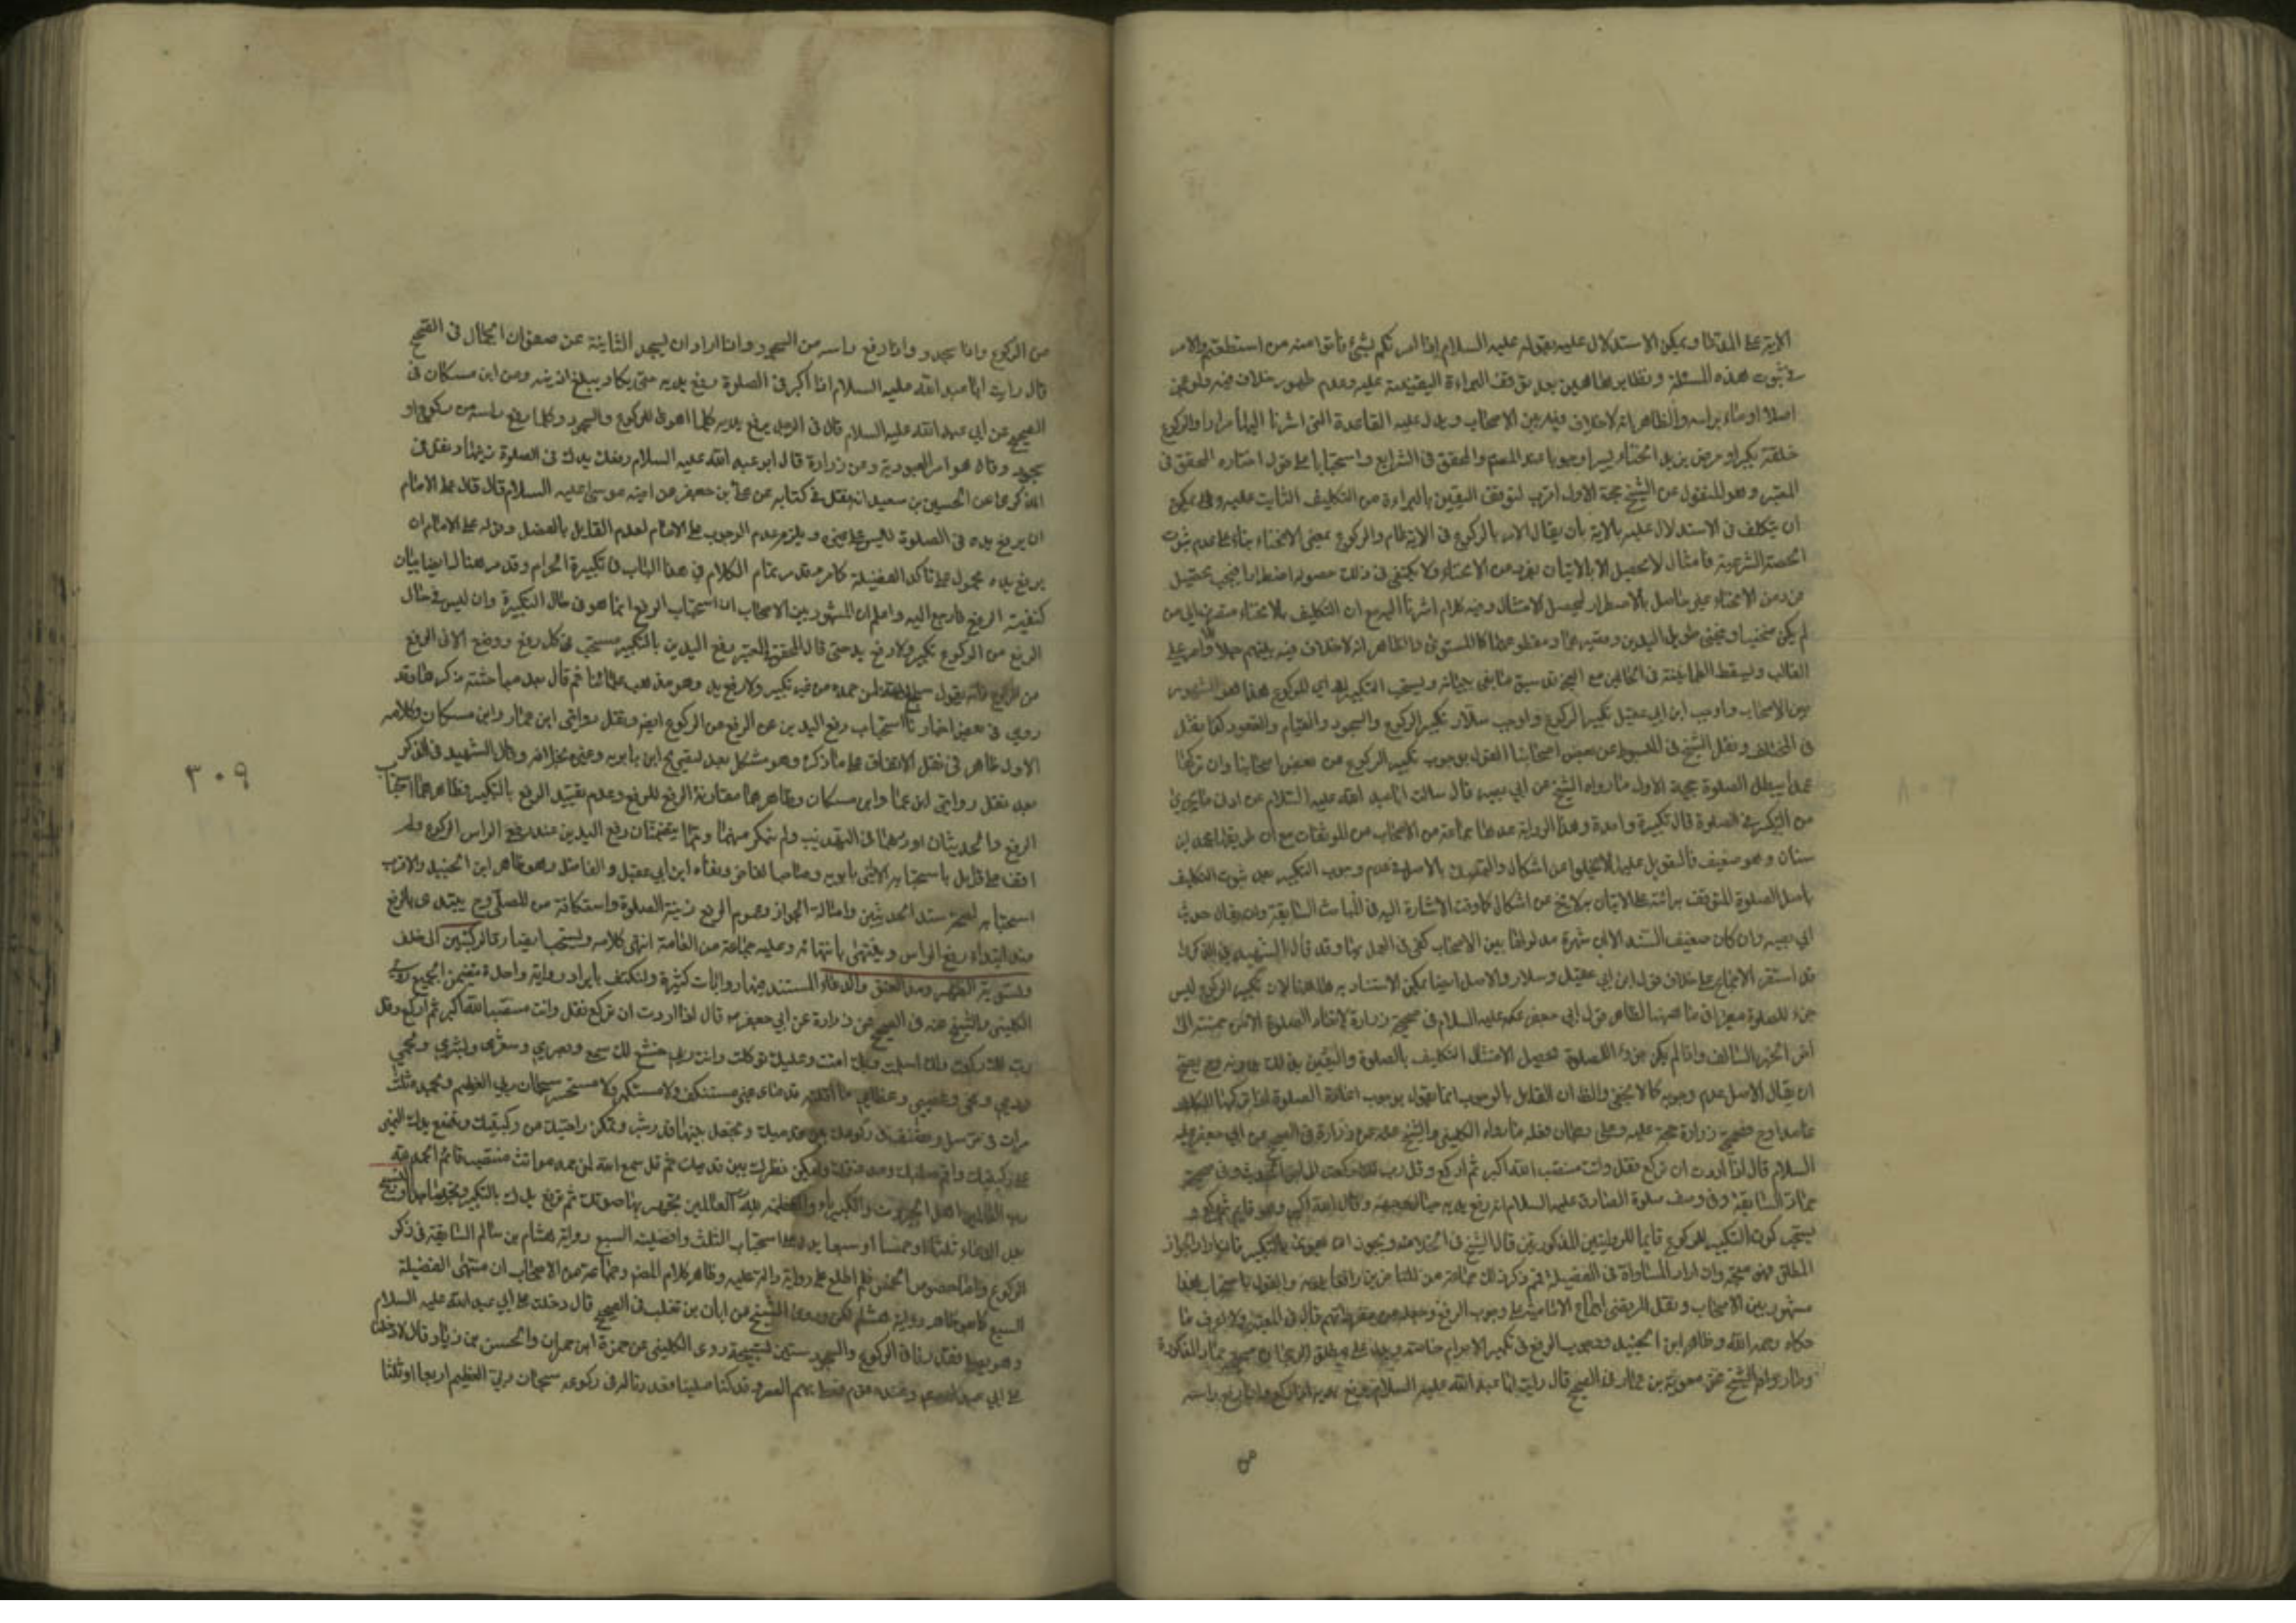 الاية على المقام ويمكن الاستدلال عليه بقوله عليه السلام اذا امرتكم بشئ فأتوا منه ما استطعتم والامر
في ثبوت هذه المسئلة ونظايرها هين بعد توقف البراءة اليقينية عليه وعدم ظهور خلاف فيه ولو عجز
اصلا اومأ براسه والظاهر انه لا خلاف فيه بين الاصحاب ويدل عليه القاعدة التي اشرنا اليها مرارا والركوع
خلقة لكبر او مرض يزيد انحناء يسيرا وجوبا عند المصنف والمحقق في الشرايع واستحبابا على قول اختاره المحقق في
المعتبر وهو المنقول عن الشيخ حجة الاول اقرب لتوقف اليقين بالبراءة من التكليف الثابت عليه وقد يمكن
ان يتكلف في الاستدلال عليه بالاية بان يقال الامر بالركوع في الاية عام والركوع بمعنى الانحناء بناء على عدم ثبوت
الحقيقة الشرعية فامتثال لا يحصل الا بالاتيان بفرد من الانحناء ولا يكتفى في ذلك حصوله اضطرارا فيجب تحصيل
فرد من الانحناء على حاصل بالاضطرار ليحصل الامتثال وفيه كلام اشرنا اليه مع ان التكليف بالانحناء متفرع الى من
لم يكن منحنيا وينحني طويل اليدين وقصيرهما ومقطوعهما كالمستوي والظاهر انه لا خلاف فيه بينهم حملا للامر على
الغالب ويسقط الطمانينة في الحالين مع العجز قد سبق ما يفي ببيانه ويستحب التكبير له اي للركوع هذا هو المشهور
بين الاصحاب واوجب ابن ابي عقيل تكبير الركوع واوجب سلار تكبير الركوع والسجود والقيام والقعود كما نقل
في المختلف ونقل الشيخ في المبسوط عن بعض اصحابنا القول بوجوب تكبير الركوع من بعض اصحابنا وان تركها
عمدا يبطل الصلوة حجة الاول ما رواه الشيخ عن ابي بصير قال سالت ابا عبد الله عليه السلام عن ادنى ما يجزي
من التكبير في الصلوة قال تكبيرة واحدة وهذا الرواية عدها جماعة من الاصحاب من الموثقات مع ان طريقها محمد بن
سنان وهو ضعيف فالتعويل عليها لا يخلو عن اشكال والتمسك بالاصل في عدم وجوب التكبير بعد ثبوت التكليف
باصل الصلوة المتوقف برائته على الاتيان به لا يخ عن اشكال كما وقت الاشارة اليه في المباحث السابقة وان يقال حديث
ابي بصير وان كان ضعيف السند الا ان شهرة مدلولها بين الاصحاب كفى في العمل بها وقد قال الشهيد في الذكرى
قد استقر الاجماع على خلاف قول ابن ابي عقيل وسلار والاصل ايضا يمكن الاستناد به هاهنا لان تكبير الركوع ليس
جزء للصلوة
اخر الخبر السالف واذا لم يكن جزءا للصلوة فيحصل الامتثال التكليف بالصلوة واليقين بذلك بدونه وح يصح
ان يقال الاصل عدم وجوبه كما لا يخفى والظ ان القايل بالوجوب انما يقول بوجوب اعادة الصلوة اذا تركها المكلف
عامدا وح فصحيح زرارة حجة عليه وعلى بطلان قوله ما رواه الكليني والشيخ عنه عن زرارة في الصحيح عن ابي جعفر عليه
السلام قال اذا اردت ان تركع فقل وانت منتصب الله اكبر ثم اركع وقل رب لك ركعت الى اخر الحديث وفي صحيحة
حماد السابقة وفي وصف صلوة الصادق عليه السلام انه رفع يديه حيال وجهه وقال الله اكبر وهو قايم ثم ركع و
يستحب كون التكبير للركوع قايما للروايتين المذكورتين قال الشيخ في الخلاف ويجوز ان يهوي بالتكبير فان اراد الجواز
المطلق فهو متجه وان اراد المساواة في الفضيلة فم ذكر ذلك جماعة من المتاخرين رافعا يديه والقول باستحباب هذا
مشهور بين الاصحاب ونقل المرتضى اجماع الامامية على وجوب الرفع وجعله من متفرداتهم قال في المعتبر ولا اعرف ما
حكاه رحمه الله وظاهر ابن الجنيد وجوب الرفع في تكبير الاحرام خاصة ويدل على مطلق الرجحان صحيح حماد المذكورة
وما رواه الشيخ عن معوية بن عمار في الصحيح قال رايت ابا عبد الله عليه السلام يرفع يديه اذا ركع واذا رفع راسه
من
من الركوع واذا سجد واذا رفع راسه من السجود واذا اراد ان يسجد الثانية عن صفوان الجمال في الصحيح
قال رايت ابا عبد الله عليه السلام اذا اكبر في الصلوة يرفع يديه حتى يكاد يبلغ اذنيه وعن ابن مسكان في
الصحيح عن ابي عبد الله عليه السلام قال في الرجل يرفع يديه كلما اهوى للركوع والسجود وكلما رفع راسه من ركوع او
سجود وقال هو العبودية وعن زرارة قال ابو عبد الله عليه السلام رفعك يدك في الصلوة زينها ونقل في
الذكرى عن الحسين بن سعيد انه نقل في كتابه عن علي بن جعفر عن اخيه موسى عليه السلام قال قال على الامام
ان يرفع يده في الصلوة ليس على غيره ويلزم عدم الوجوب على الامام لعدم القايل بالفصل وقوله على الامام ان
يرفع يده محمول على تاكد الفضيلة كما مر وقد مر تمام الكلام في هذا الباب في تكبيرة الحرام وقد مر هنالك ايضا بيان
كيفية الرفع فارجع اليه واعلم ان المشهور بين الاصحاب ان استحباب الرفع انما هو في حال التكبيرة وان ليس في حال
الرفع من الركوع تكبير ولا رفع يد حتى قال المحقق في المعتبر رفع اليدين بالتكبير مستحب في كل رفع ووضع الا في الرفع
من الركوع فانه يقول سمع الله لمن حمده من غير تكبير ولا رفع يد وهو مذهب علمائنا ثم قال بعد مباحثته ذكرها وقد
روي في بعض اخبارنا استحباب رفع اليدين عن الرفع من الركوع ايضا ونقل روايتي ابن عمار وابن مسكان وكلامه
الاول ظاهر في نقل الاتفاق على ما ذكره وهو مشكل بعد تصريح ابن بابويه وغيره بخلافه وقال الشهيد في الذكرى
بعد نقل روايتي ابن عمار وابن مسكان وظاهرهما مقارنة الرفع للرفع وعدم تقييد الرفع بالتكبير وظاهرهما استحباب
الرفع والحديثان اوردهما في التهذيب ولم ينكر منهما وهما يتضمنان رفع اليدين عند رفع الراس الركوع ولم
اقف على قايل باستحبابه الا ابني بابويه وصاحب الفاخر ونفاه ابن ابي عقيل والفاضل وهو ظاهر ابن الجنيد والاقرب
استحبابه لصحة سند الحديثين واصالة الجواز وعموم الرفع زينة الصلوة واستكانة من المصلي وح يبتدي بالرفع
عند ابتداء رفع الراس وينتهي بانتهائه وعليه جماعة من العامة انتهى كلامه ويستحب ايضا رد الركبتين الى خلف
وتسوية الظهر ومد العنق والدعاء المستند فيها روايات كثيرة ولنكتف بايراد رواية واحدة متضمن الجميع روى
الكليني والشيخ عنه في الصحيح عن زرارة عن ابي جعفر ع قال اذا اردت ان تركع فقل وانت منتصب الله اكبر ثم اركع وقل
رب لك ركعت ولك اسلمت وبك امنت وعليك توكلت وانت ربي خشع لك سمعي وبصري وشعري وبشري ولحمي
ودمي ومخي وعصبي وعظامي وما اقلته قدماي غير مستنكف ولا مستكبر ولا مستحسر سبحان ربي العظيم وبحمده ثلث
مرات في ترسل وتصف في ركوعك بين قدميك وتجعل بينهما قدر شبر وتمكن راحتيك من ركبتيك وتضع يدك اليمنى
على ركبتيك واقم صلبك ومد عنقك وليكن نظرك بين قدميك ثم قل سمع الله لمن حمده وانت منتصب قائم الحمد لله
رب العالمين اهل الجبروت والكبرياء والعظمة لله رب العالمين تجهر بها صوتك ثم ترفع يديك بالتكبير وتخر ساجدا والتسبيح
بعد الدعاء ثلثا او خمسا او سبعا يدل على استحباب الثلث وافضلية السبع رواية هشام بن سالم السابقة في ذكر
الركوع واما خصوص الخمس فلم اطلع على رواية دالة عليه وظاهر كلام المصنف وجماعة من الاصحاب ان منتهى الفضيلة
السبع كما هو ظاهر رواية هشام لكن روى الشيخ عن ابان بن تغلب في الصحيح قال دخلت على ابي عبد الله عليه السلام
وهو يصلي فعددت له في الركوع والسجود ستين تسبيحة وروى الكليني عن حمزة ابن حمران والحسن بن زياد قالا دخلنا
على ابي عبد الله ع وعنده قوم فصلى بهم العصر وقد كنا صلينا فعددنا له في ركوعه سبحان ربي العظيم اربعا او ثلثا
٣٠٩